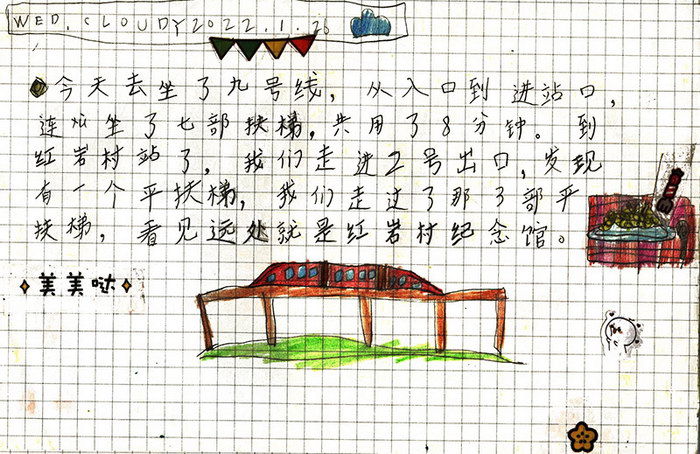 WED. CLOUDY 2022.1.26
今天去坐了九号线，从入口到进站口，
连心坐了七部扶梯，共用了8分钟。到
红岩村站了，我们走进2号出口，发现
有一个平扶梯，我们走过了那了部平
扶梯，看见远处就是红岩村纪念馆。
美美哒